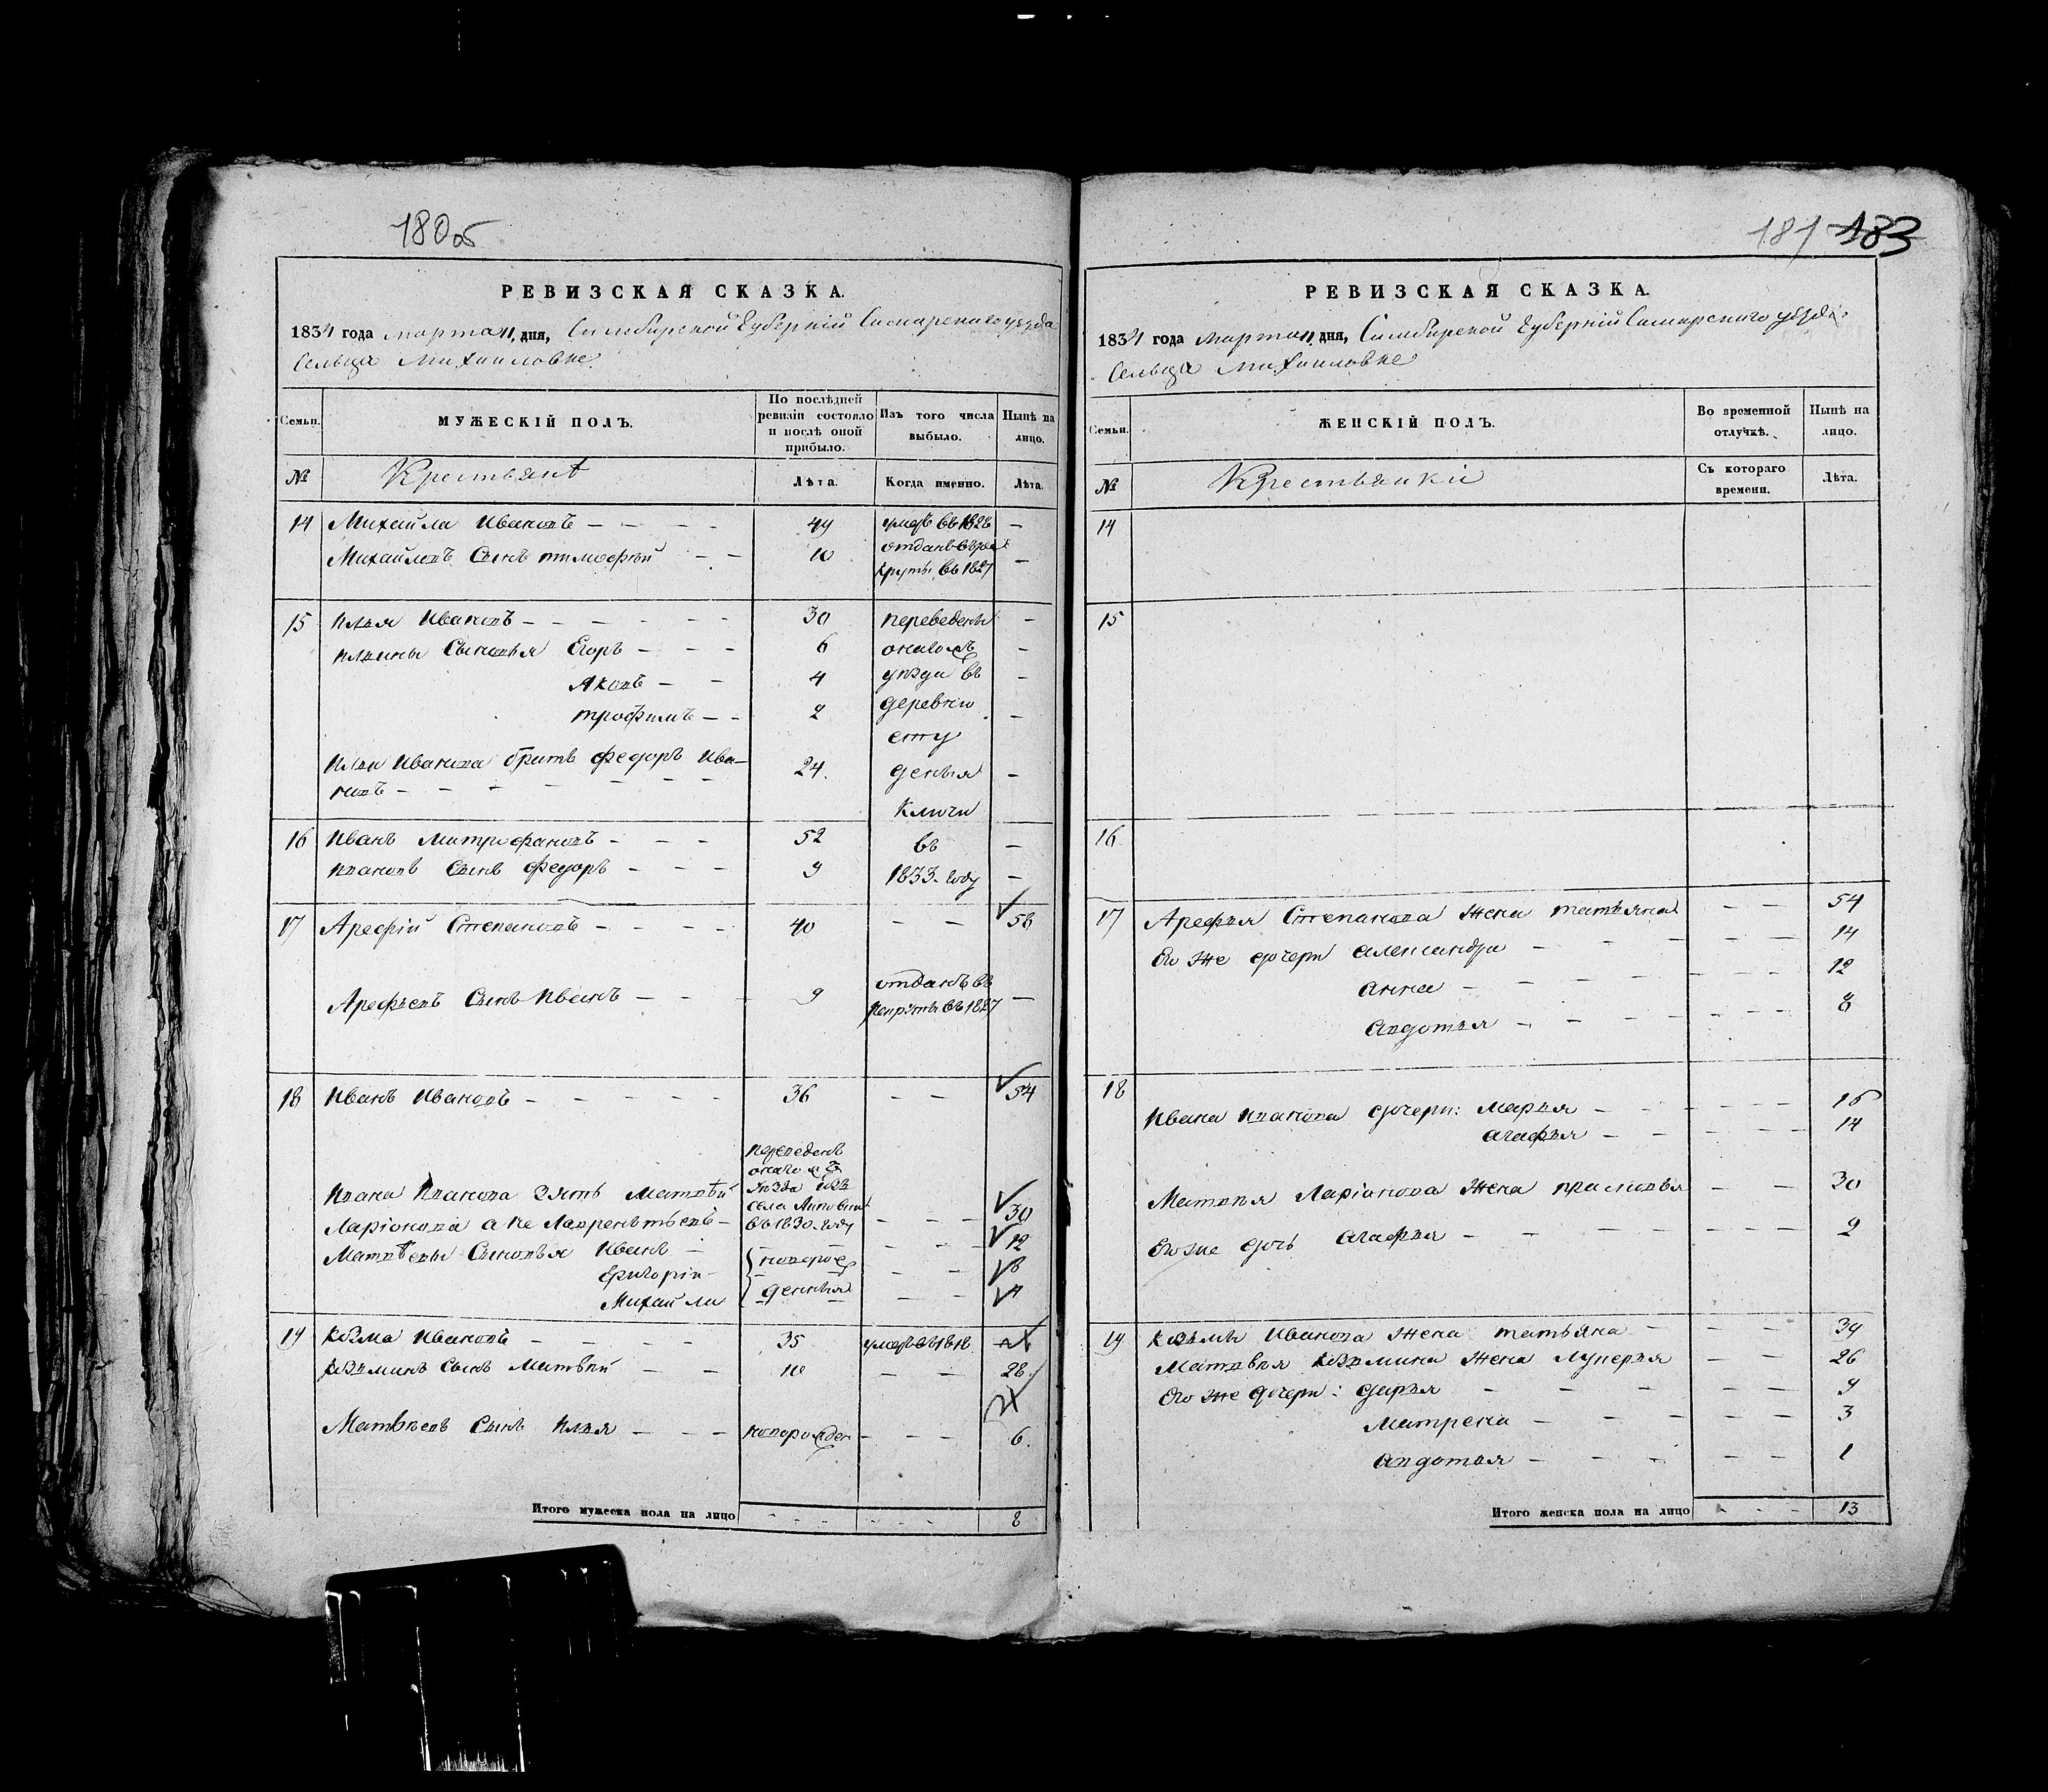 180об
РЕВИЗСКАЯ СКАЗКА.
1834 года марта 11 дня, Симбирской Губерніи Самарскаго уезда
Сельца Михайловке
Семьи. МУЖЕСКІЙ ПОЛЪ. По послѣдней ревизіи состояло и послѣ оной прибыло. Изъ того числа выбыло. Нынѣ на лицо.
№ Крестьянѣ Лѣта. Когда именно. Лѣта.
14 Михайла Ивановъ – – – – 49 умре въ 1828 –
Михайловъ Сынъ тимофѣй – – 10 отданъ въ рекруты въ 1827 –
15 илья Ивановъ – – – – – – 30 переведены –
ильины Сыновья Егоръ – – – 6 онаго жъ –
Яковъ – – 4 уѣзда въ –
трофимъ – – 2 деревню –
сту
ильи Иванова братъ федоръ Ива- 24. деныя –
новъ – – – – – – –
Ключи
16 Иванъ Митрофановъ – – – 52 въ –
ивановъ Сынъ федоръ – – – 9 1833. году –
17 Арефій Степановъ – – – – 40 – – 56
Арефьевъ Сынъ Иванъ – – – 9 отданъ въ рекруты въ 1827 –
18 Иванъ Ивановъ – – – – – 36 – – 54
переведенъ
онаго жъ
Ивана Иванова зять Матвѣй уѣзда изъ
села
Ларіонова а не Лаврентьевъ – въ 1830. году – – – 30
Матвѣевы Сыновья Иванъ – новорож – – – 12
Григорій – денныя – – 8
Михайла – – 4
19 козма Ивановъ – – – – 35 умре въ 1818
козминъ Сынъ Матвѣй – – 10 – – 28.
Матвѣевъ Сынъ илья – – – новорожден – – – 6.
Итого мужеска пола на лицо – – – – – – 8
181 183
РЕВИЗСКАЯ СКАЗКА.
1834 года марта 11 дня, Симбирской Губерніи Самарскаго уезда
Сельца Михайловке
Семьи. ЖЕНСКІЙ ПОЛЪ. Во временной отлучкѣ. Нынѣ на лицо.
№ Крестьянкіи Съ котораго времени. Лѣта.
14
15
16
17 Арефья Степанова жена татьяна – – 54
Его же дочери александра – – – – – 14
анна – – – – – – 12
авдотья – – – – – – 8
18
Ивана Иванова дочери: Марья – – – – – 16
агафья – – – – 14
Матвѣя Ларіонова жена прасковья – – 30
Его же дочь агафья – – – – – 2
19 козьмы Иванова жена татьяна – – – 34
Матвѣя козмина жена Лукерья – – 26
Его же дочери: дарья – – – – – 9
Матрена – – – – – 3
авдотья – – – – – 1
Итого женска пола на лицо – – – 13